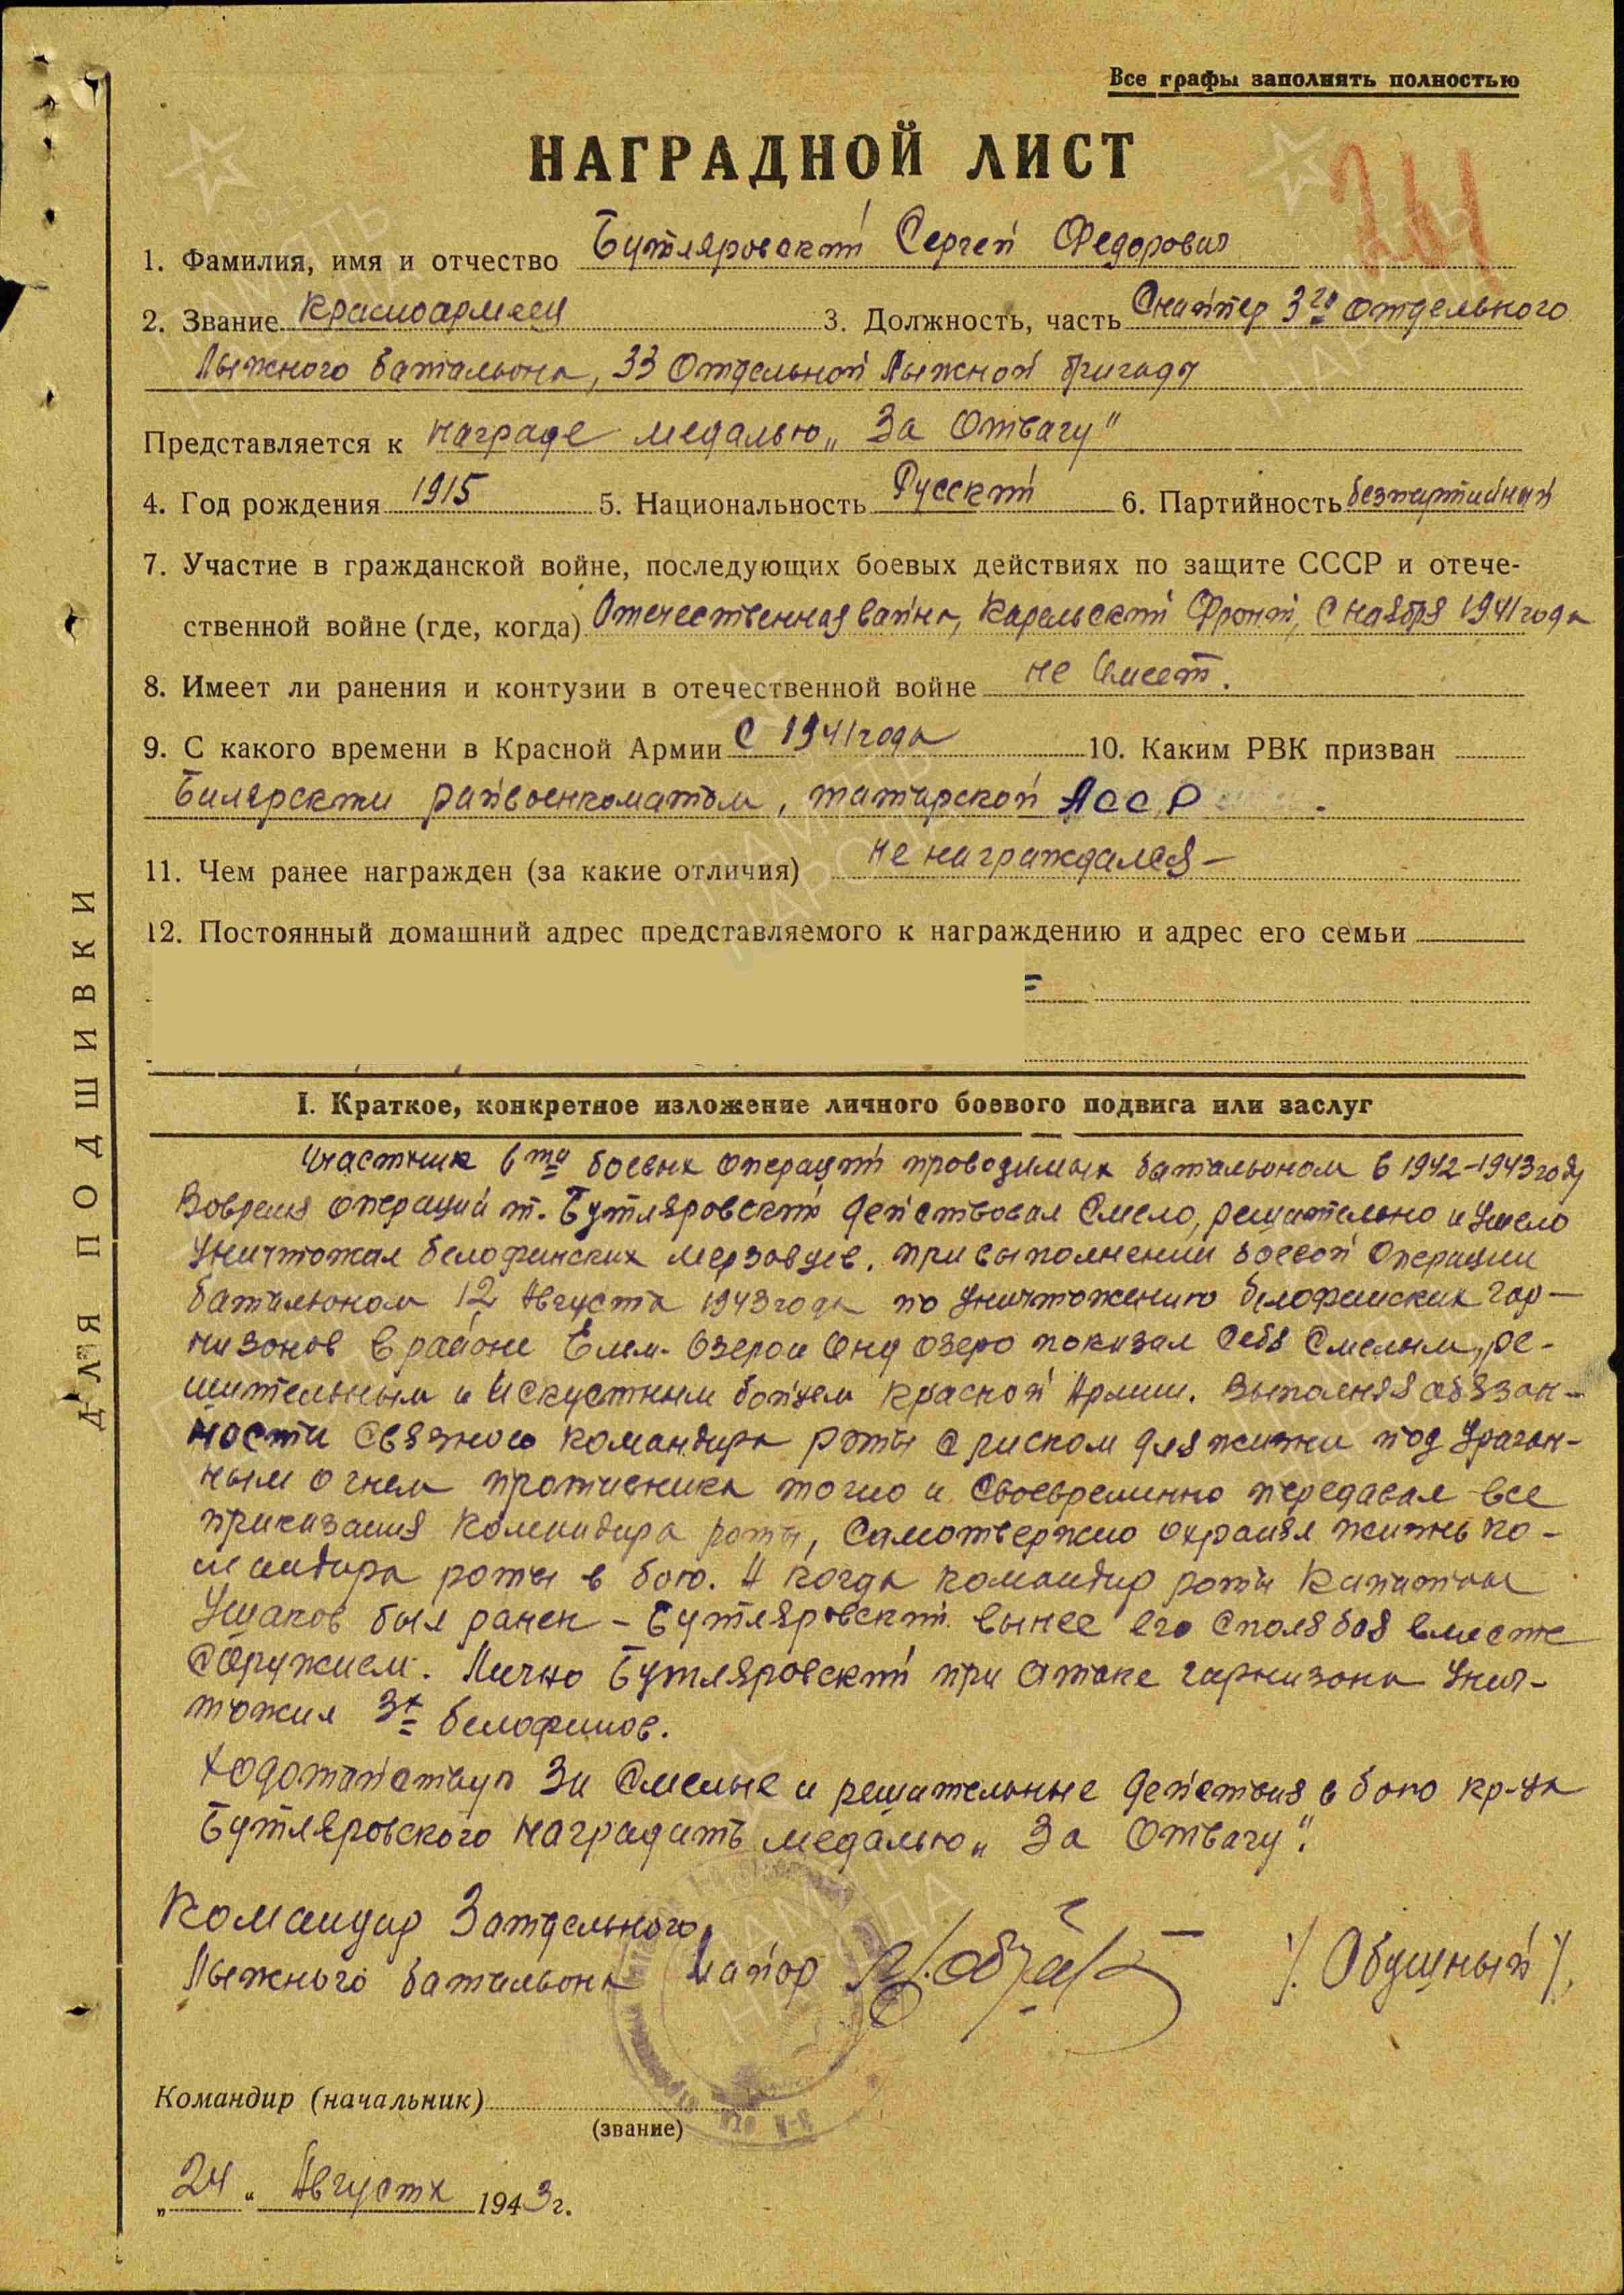 Все графы заполнять полностью
НАГРАДНОЙ ЛИСТ
1. Фамилия, имя и отчество Бутляровский Сергей Федорович
2. Звание Красноармеец 3. Должность, часть Снайпер 3го отдельного
Лыжного батальона, 33 Отдельной Лыжной бригады
Представляется к награде медалью „За Отвагу"
4. Год рождения 1915 5. Национальность Русский 6. Партийность безпартийный
7. Участие в гражданской войне, последующих боевых действиях по защите СССР и отече-
ственной войне (где, когда) Отечественная вайна, Карельский Фронт, с наября 1941 года
8. Имеет ли ранения и контузии в отечественной войне не имеет.
9. С какого времени в Красной Армии с 1941 года 10. Каким РВК призван
Билярским райвоенкоматом, татарской АССР
11. Чем ранее награжден (за какие отличия) не награждался –
12. Постоянный домашний адрес представляемого к награждению и адрес его семьи
I. Краткое, конкретное изложение личного боевого подвига или заслуг
Участник 6ти боевых операций проводимых батальоном в 1942-1943 году
Вовремя операций т. Бутляровский действовал смело, решительно и умело
уничтожал белофинских мерзавцев. при выполнении боевой операции
батальоном 12 Августа 1943 года по уничтожению белофинских гар-
низонов в районе Елм-Озеро и Онд озеро показал себя смелым, ре-
шительным и искустным бойцем красной Армии. Выполняя обязан-
ности связного командира роты с риском для жизни под ураган-
ным огнем противника точно и своевременно передавал все
приказания командира роты, самотвержно охранял жизнь ко-
мандира роты в бою. А когда командир роты капитан
Ушаков был ранен – Бутляровский вынес его споля боя вместе
соружием. Лично Бутляровский при атаке гарнизона унич-
тожил 3х белофинов.
Ходотайствую за смелые и решительные действия в бою кр-ца
Бутляровского наградить медалью „За Отвагу".
Командир 3 отдельного
Лыжного батальона майор /Обущный/.
Командир (начальник)
(звание)
„24" Августа 1943 г.
ДЛЯ ПОДШИВКИ
ПАМЯТЬ НАРОДА